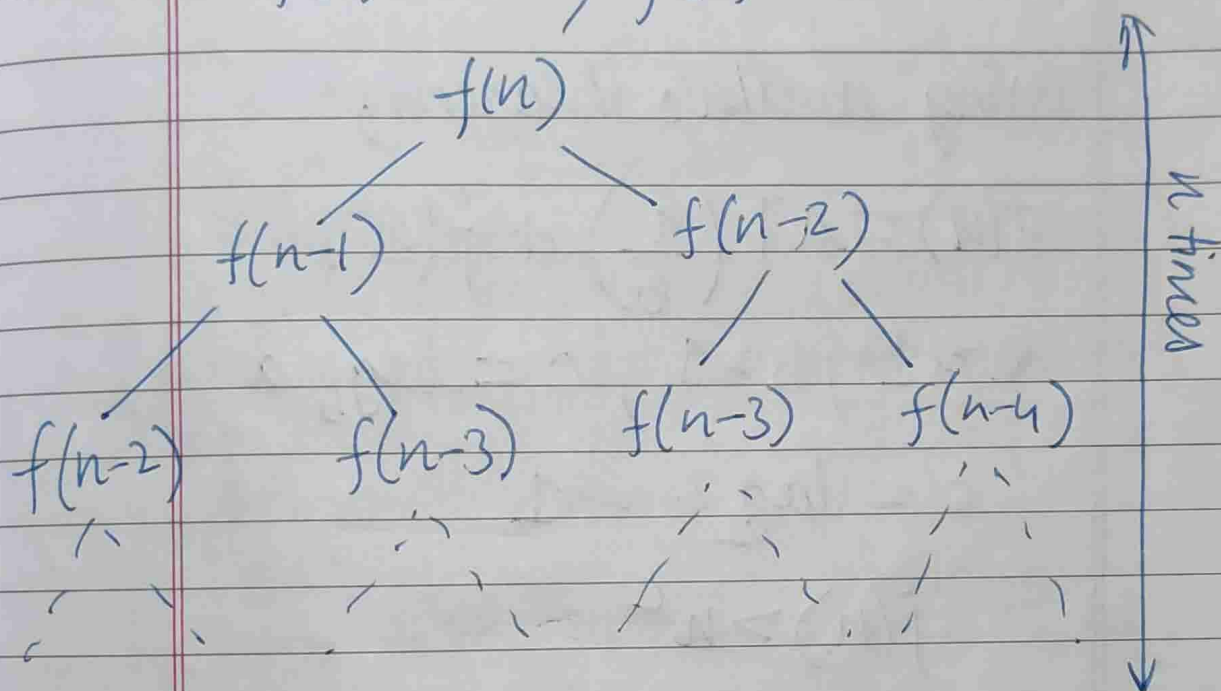 f(n)
f(n-1) f(n-2)
f(n-2) f(n-3) f(n-3) f(n-4)
n times